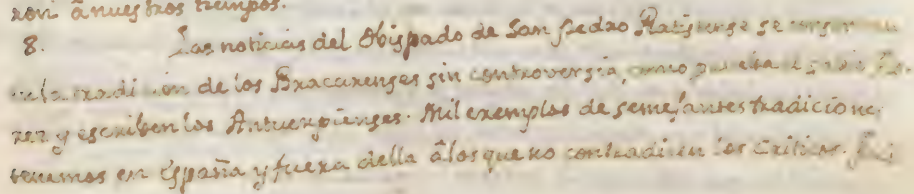 ron â nuestros tiempos.
8. Las noticias del Obispado de San Pedro Ratistense se
en la tradicion de los Bracarenses sin controversia, como prueba el
rez y escriben los Antuerpienses. Mil exemplos de semejantes tradicione
tenemos en España y fuera della â los que no contradicen los Criticos.